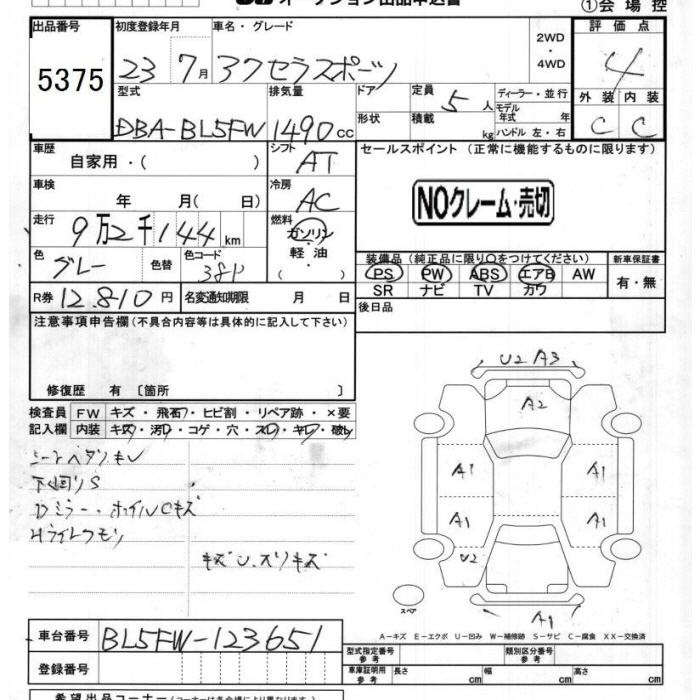 オークション出品申込書
①会場控
出品番号 初度登録年月 車名・グレード 2WD・4WD 評価点
5375 23 7月 アクセラスポーツ 4
型式 排気量 ドア 定員 5人 ディーラー・並行 外装 内装
DBA-BL5FW 1490cc 形状 積載 kg モデル年式 年 ハンドル 左・右 C C
車歴 自家用・( ) シフト AT セールスポイント (正常に機能するものに限ります)
車検 年 月( 日) 冷房 AC NOクレーム・売切
走行 9万2千144km 燃料 ガソリン・軽油・( )
色 グレー 色替 色コード 38P 装備品 (純正品に限り○をつけてください) 新車保証書
PS PW ABS エアB AW 有・無
SR ナビ TV カワ
R券 12810円 名変通知期限 月 日 後日品
注意事項申告欄(不具合内容等は具体的に記入して下さい)
修復歴 有 〔箇所 〕
検査員 FW キズ・飛石・ヒビ割・リペア跡・×要
記入欄 内装 キズ・汚レ・コゲ・穴・スレ・キレ・破レ
シートヘタリキレ
下回りS
Dミラー・ホイルCキズ
Hライトクモリ
キズU.スリキズ
U2 A3
A2
A1 A1
A1 A1
U2
A1
スペア
A-キズ E-エクボ U-凹み W-補修跡 S-サビ C-腐食 XX-交換済
車台番号 BL5FW-123651
型式指定番号 参考 類別区分番号 参考
登録番号
車庫証明用 参考 長さ cm 幅 cm 高さ cm
希望出品コーナー(コーナーは各会場により異なります)